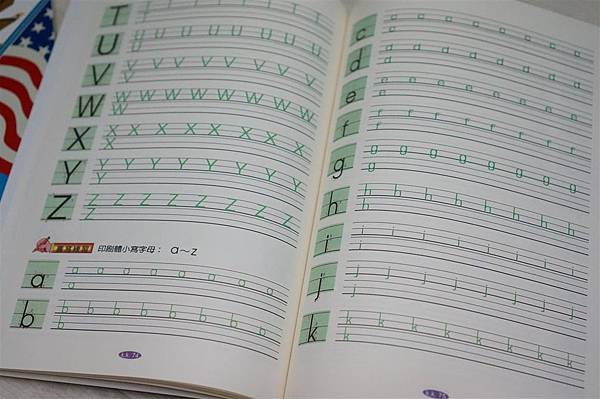 T T T T T T T T T
U U U U U U U U U
U
V V V V V V V V V
V
W W W W W W W W W
W
X X X X X X X X X
X
Y Y Y Y Y Y Y Y Y
Y
Z Z Z Z Z Z Z Z Z
Z
印刷體小寫字母： a～z
a a a a a a a a a
a
b b b b b b b b b
b
k.k. 74
c c c c c c c c c
c
d d d d d d d d d
d
e e e e e e e e e
e
f f f f f f f f f
f
g g g g g g g g g
g
h h h h h h h h h
h
i i i i i i i i i
i
j j j j j j j j j
j
k k k k k k k k k
k
k.k. 75